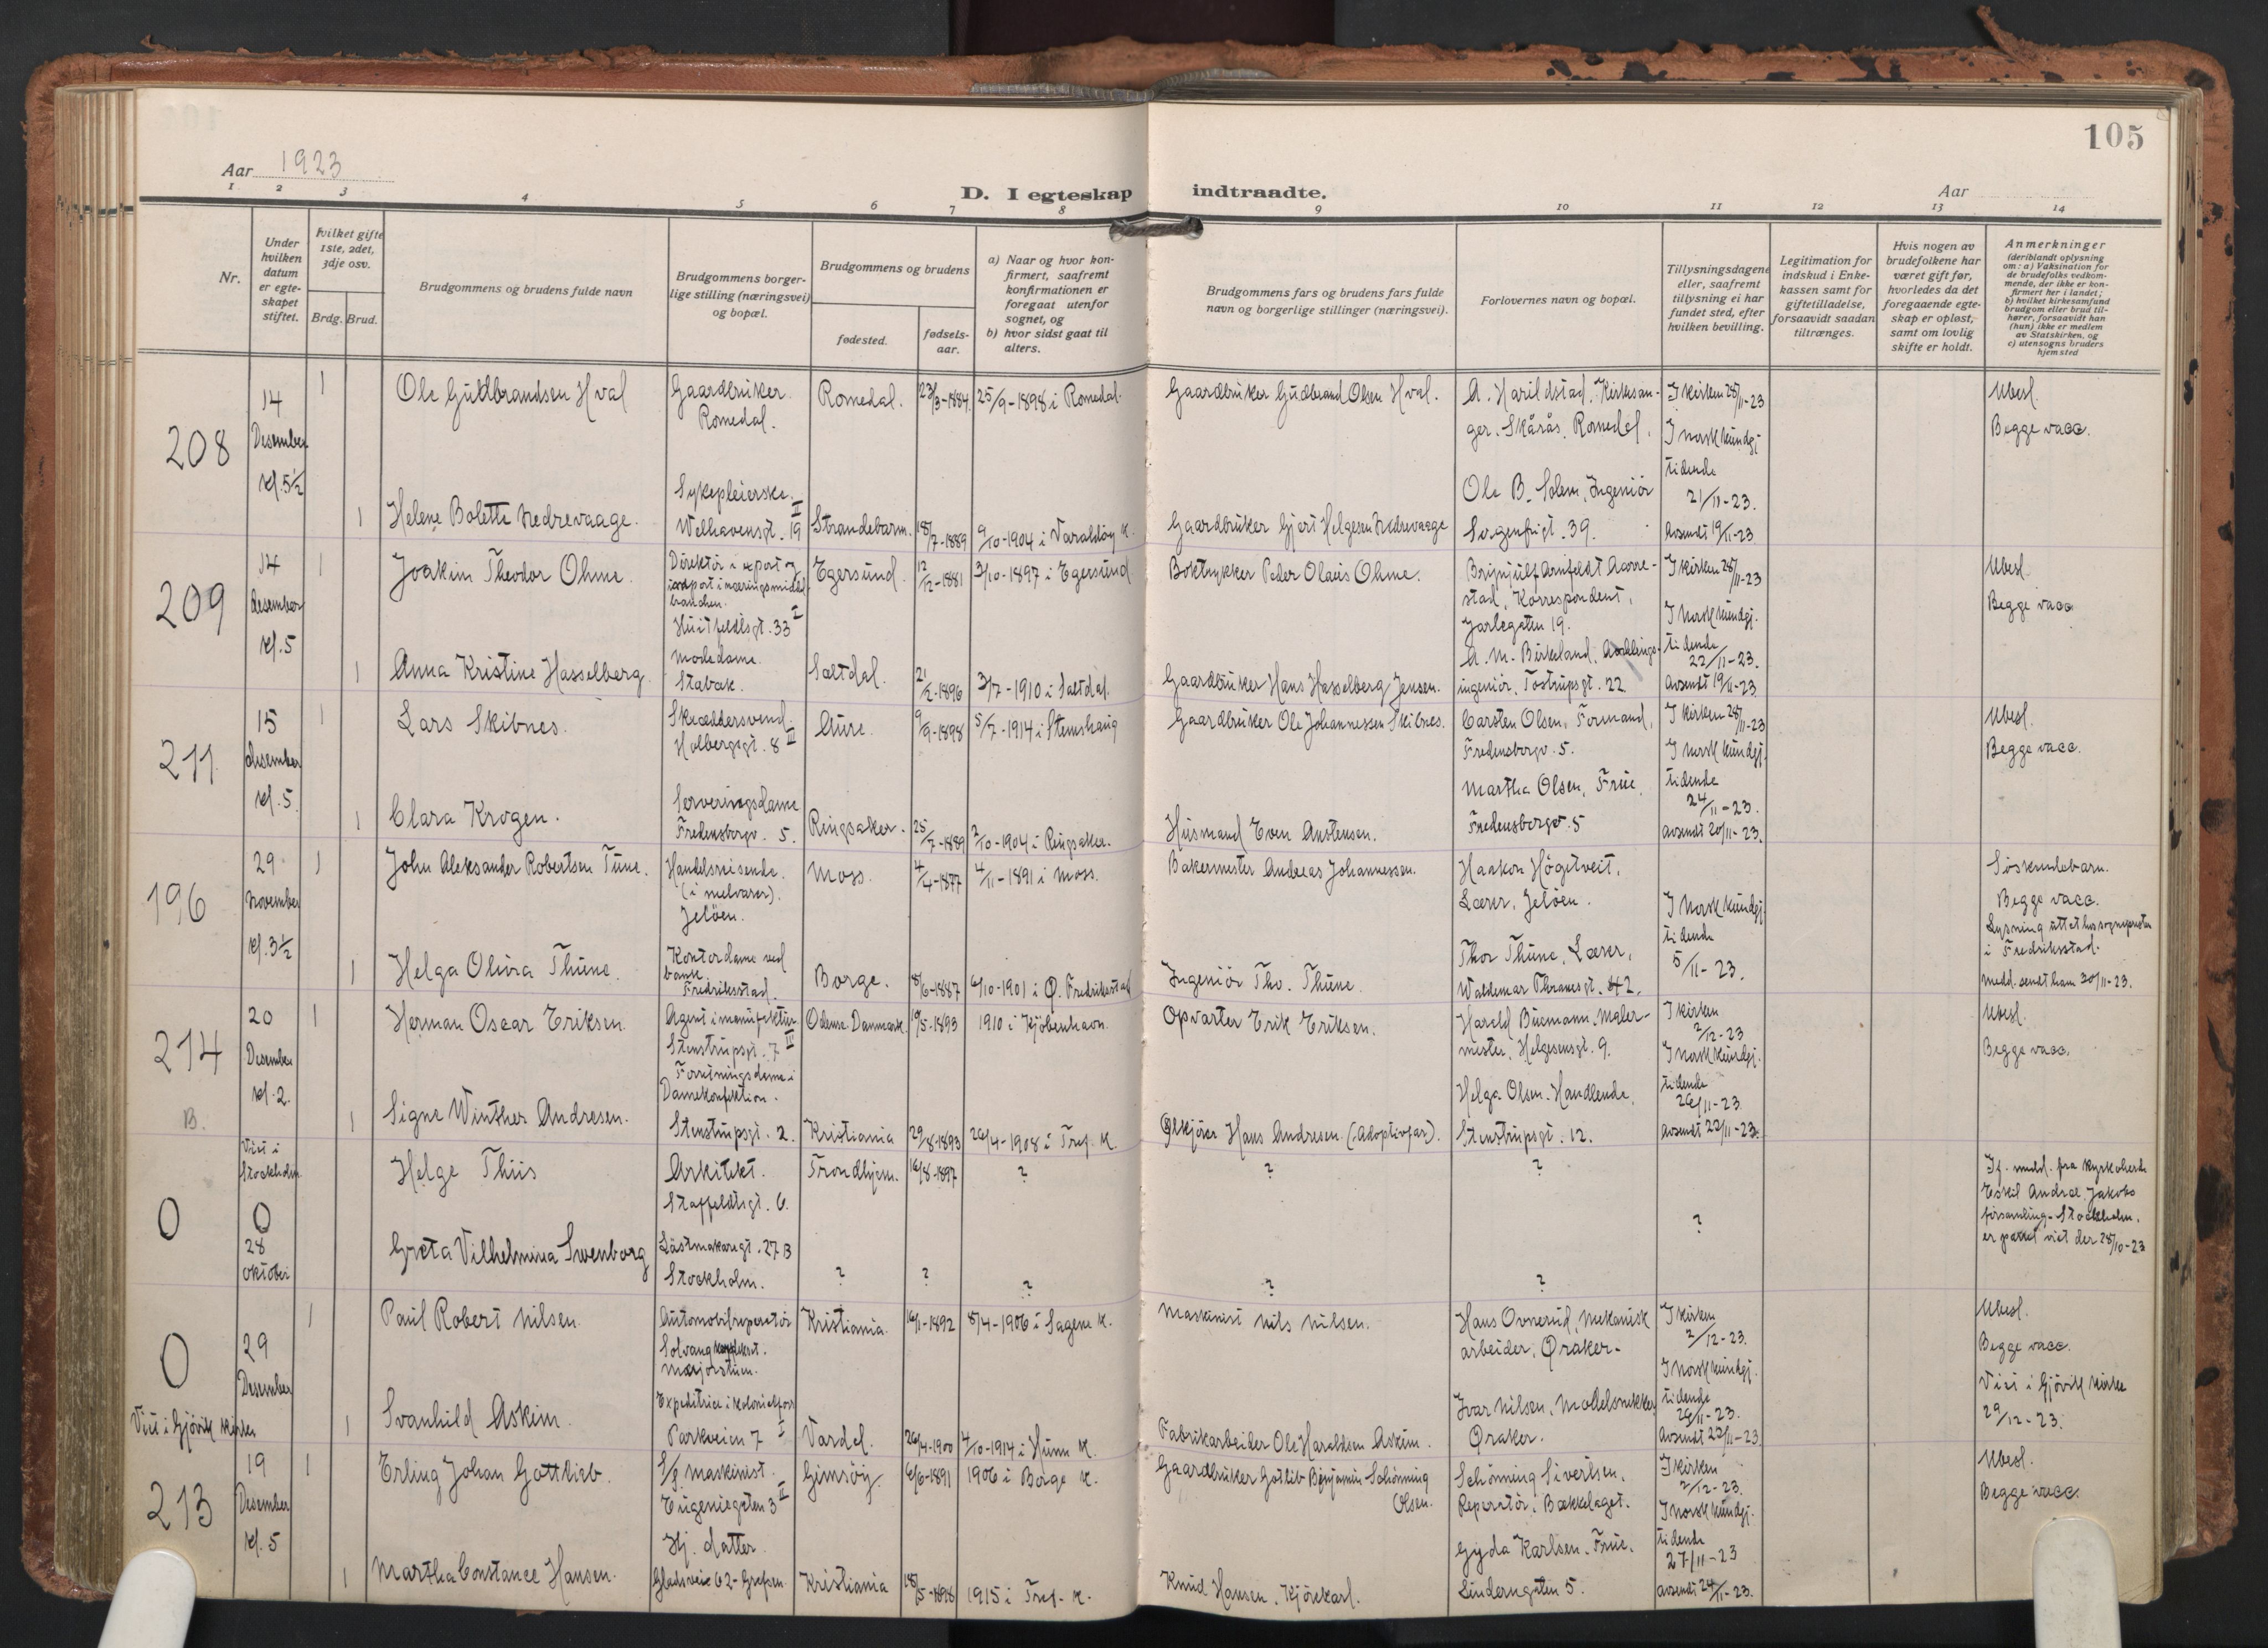 105
Aar 1923
D. I egteskap indtraadte.
Aar
1 2 3 4 5 6 7 8 9 10 11 12 13 14
Nr.
Under hvilken datum er egteskapet stiftet.
Hvilket gifte 1ste, 2det, 3dje osv.
Brdg. Brud.
Brudgommens og brudens fulde navn
Brudgommens borgerlige stilling (næringsvei) og bopæl.
Brudgommens og brudens
fødested.
fødselsaar.
a) Naar og hvor konfirmert, saafremt konfirmationen er foregaat utenfor sognet, og
b) hvor sidst gaat til alters.
Brudgommens fars og brudens fars fulde navn og borgerlige stillinger (næringsvei).
Forlovernes navn og bopæl.
Tillysningsdagene eller, saafremt tillysning ei har fundet sted, efter hvilken bevilling.
Legitimation for indskud i Enkekassen samt for giftetilladelse, forsaavidt saadan tiltrænges.
Hvis nogen av brudefolkene har været gift før, hvorledes da det foregaaende egteskap er opløst, samt om lovlig skifte er holdt.
Anmerkninger
(deriblandt oplysning om: a) Vaksination for de brudefolks vedkommende, der ikke er konfirmert her i landet; b) hvilket kirkesamfund brudgom eller brud tilhører, forsaavidt han (hun) ikke er medlem av Statskirken, og c) utensogns bruders hjemsted
208
14 Desember kl. 5½
1
Ole Gudbrandsen Hval
Gaardbruker. Romedal.
Romedal.
23/3-1884
25/9-1898 i Romedal.
Gaardbruker Gudbrand Olsen Hval.
A. Harildstad, Kirkesanger. Skårås, Romedal.
I kirken 28/11-23
I norsk kundgj. tidende 21/11-23.
Avsendt 19/11-23
Ubesl.
Begge vacc.
1
Helene Bolette Nedrevaage.
Sykepleierske. Welhavensgt. 19 II
Strandebarm.
18/7-1889
9/10-1904 i Varaldöy K.
Gaardbruker Gjert Helgesen Nedrevaage
Ole B. Solem, Ingeniör Sorgenfrigt. 39.
209
14 desember kl. 5
1
Joakim Theodor Ohme.
Direktör i export og import i næringsmiddelbranchen. Huitfeldtsgt. 33 I
Egersund.
12/12-1881
3/10-1897 i Egersund
Boktrykker Peder Olaus Ohme.
Brynjulf Arnfeldt Aarrestad, Korrespondent, Jarlegaten 19.
I kirken 28/11-23
I Norsk kundgj. tidende 22/11-23.
Avsendt 19/11-23
Ubesl.
Begge vacc
1
Anna Kristine Hasselberg.
Modedame. Stabæk.
Saltdal.
21/2-1896
3/7-1910 i Saltdal.
Gaardbruker Hans Hasselberg Jensen.
A. M. Birkeland, ingeniör, Tostrupsgt. 22
211
15 desember kl. 5.
1
Lars Skibnes.
Skræddersvend. Holbergsgt. 8 III
Aure.
9/9-1898
5/7-1914 i Stemshaug
Gaardbruker Ole Johannessen Skibnes.
Carsten Olsen, Formand, Fredensborgv. 5.
I kirken 28/11-23
I norsk kundgj. tidende 24/11-23.
avsendt 20/11-23.
Ubesl.
Begge vacc.
1
Clara Krogen.
Serveringsdame Fredensborgv. 5.
Ringsaker.
25/7-1889
2/10-1904 i Ringsaker.
Husmand Even Anstensen.
Martha Olsen, Frue, Fredensborgv. 5
196
29 November kl. 3½
1
John Aleksander Robertsen Tune.
Handelsreisende. (i melvarer). Jelöen.
Moss.
4/4-1877
4/11-1891 i Moss.
Bakermester Andreas Johannessen.
Haakon Högetveit, Lærer, Jelöen.
I Norsk kundgj. tidende 5/11-23.
Söskendebarn.
Begge vacc.
Lysning uttat hos sognepresten i Fredriksstad.
Medd. sendt ham 30/11-23.
1
Helga Olivia Thune.
Kontordame ved bank. Fredriksstad.
Borge.
8/6-1887
6/10-1901 i Ø. Fredrikstad
Ingeniör Tho. Thune.
Thor Thune, Lærer, Waldemar Thranesgt. 42.
214
B.
20 Desember kl. 2.
1
Herman Oscar Eriksen.
Agent i manufaktur. Stenstrupsgt. 7 IV
Odense. Danmark.
10/5-1893
1910 i Kjöbenhavn.
Opvarter Erik Eriksen.
Harald Buemann, Malermester, Helgesensgt. 9.
I kirken 2/12-23
I Norsk kundgj. tidende 26/11-23
Avsendt 22/11-23.
Ubesl.
Begge vacc.
1
Signe Winther Andresen.
Forretningsdame i Damekonfektion. Stenstrupsgt. 2.
Kristiania
29/8-1893
26/4-1908 i Tref. K.
Ølkjörer Hans Andresen (Adoptivfar).
Helga Olsen. Handlende, Stenstrupsgt. 12.
0
Viet i Stockholm 0 28 oktober
Helge Thiis
Arkitekt. Staffeldtsgt. 6.
Trondhjem.
16/8-1897
?
?
?
?
If. medd. fra kyrkoherde Eskil Andræ. Jakobs församling-Stockholm. er paret viet der 28/10-23
Greta Vilhelmina Swenborg
Lästmakaregt. 27 B Stockholm.
?
?
?
?
?
0
29 Desember
Viet i Gjövik kirke
1
Paul Robert Nilsen.
Automobilreparatör Solvang Majorstuen.
Kristiania.
16/1-1892
8/4-1906 i Sagene K.
Maskinist Nils Nilsen.
Hans Ovnerud, Mekanisk arbeider, Øraker.
I kirken 2/12-23.
I Norsk kundgj. tidende 26/11-23.
Avsendt 22/11-23
Ubesl.
Begge vacc.
Viet i Gjövik kirke 29/12-23.
1
Svanhild Askim.
Expeditrice i kolonialforr. Parkveien 7 I
Vardal.
26/4-1900
4/10-1914 i Hunn K.
Fabrikarbeider Ole Haraldsen Askim.
Ivar Nilsen, Modelsnekker, Øraker.
213
19 Desember kl. 5
1
Erling Johan Gottlieb.
S/S maskinist. Eugeniegaten 3 II
Gimsöy.
6/6-1891
1906 i Borge K.
Gaardbruker Gotlib Benjamin Schönning Olsen.
Schönning Sivertsen, Reparatör, Bækkelaget.
I kirken 2/12-23.
I Norsk kundgj. tidende 27/11-23
avsendt 24/11-23.
Ubesl.
Begge vacc.
1
Martha Constance Hansen.
Hj. datter. Gladsvei 62-Grefsen.
Kristiania
18/5-1898
1915 i Tref. K.
Knud Hansen, Kjörekarl.
Gyda Karlsen, Frue, Linderngaten 5.